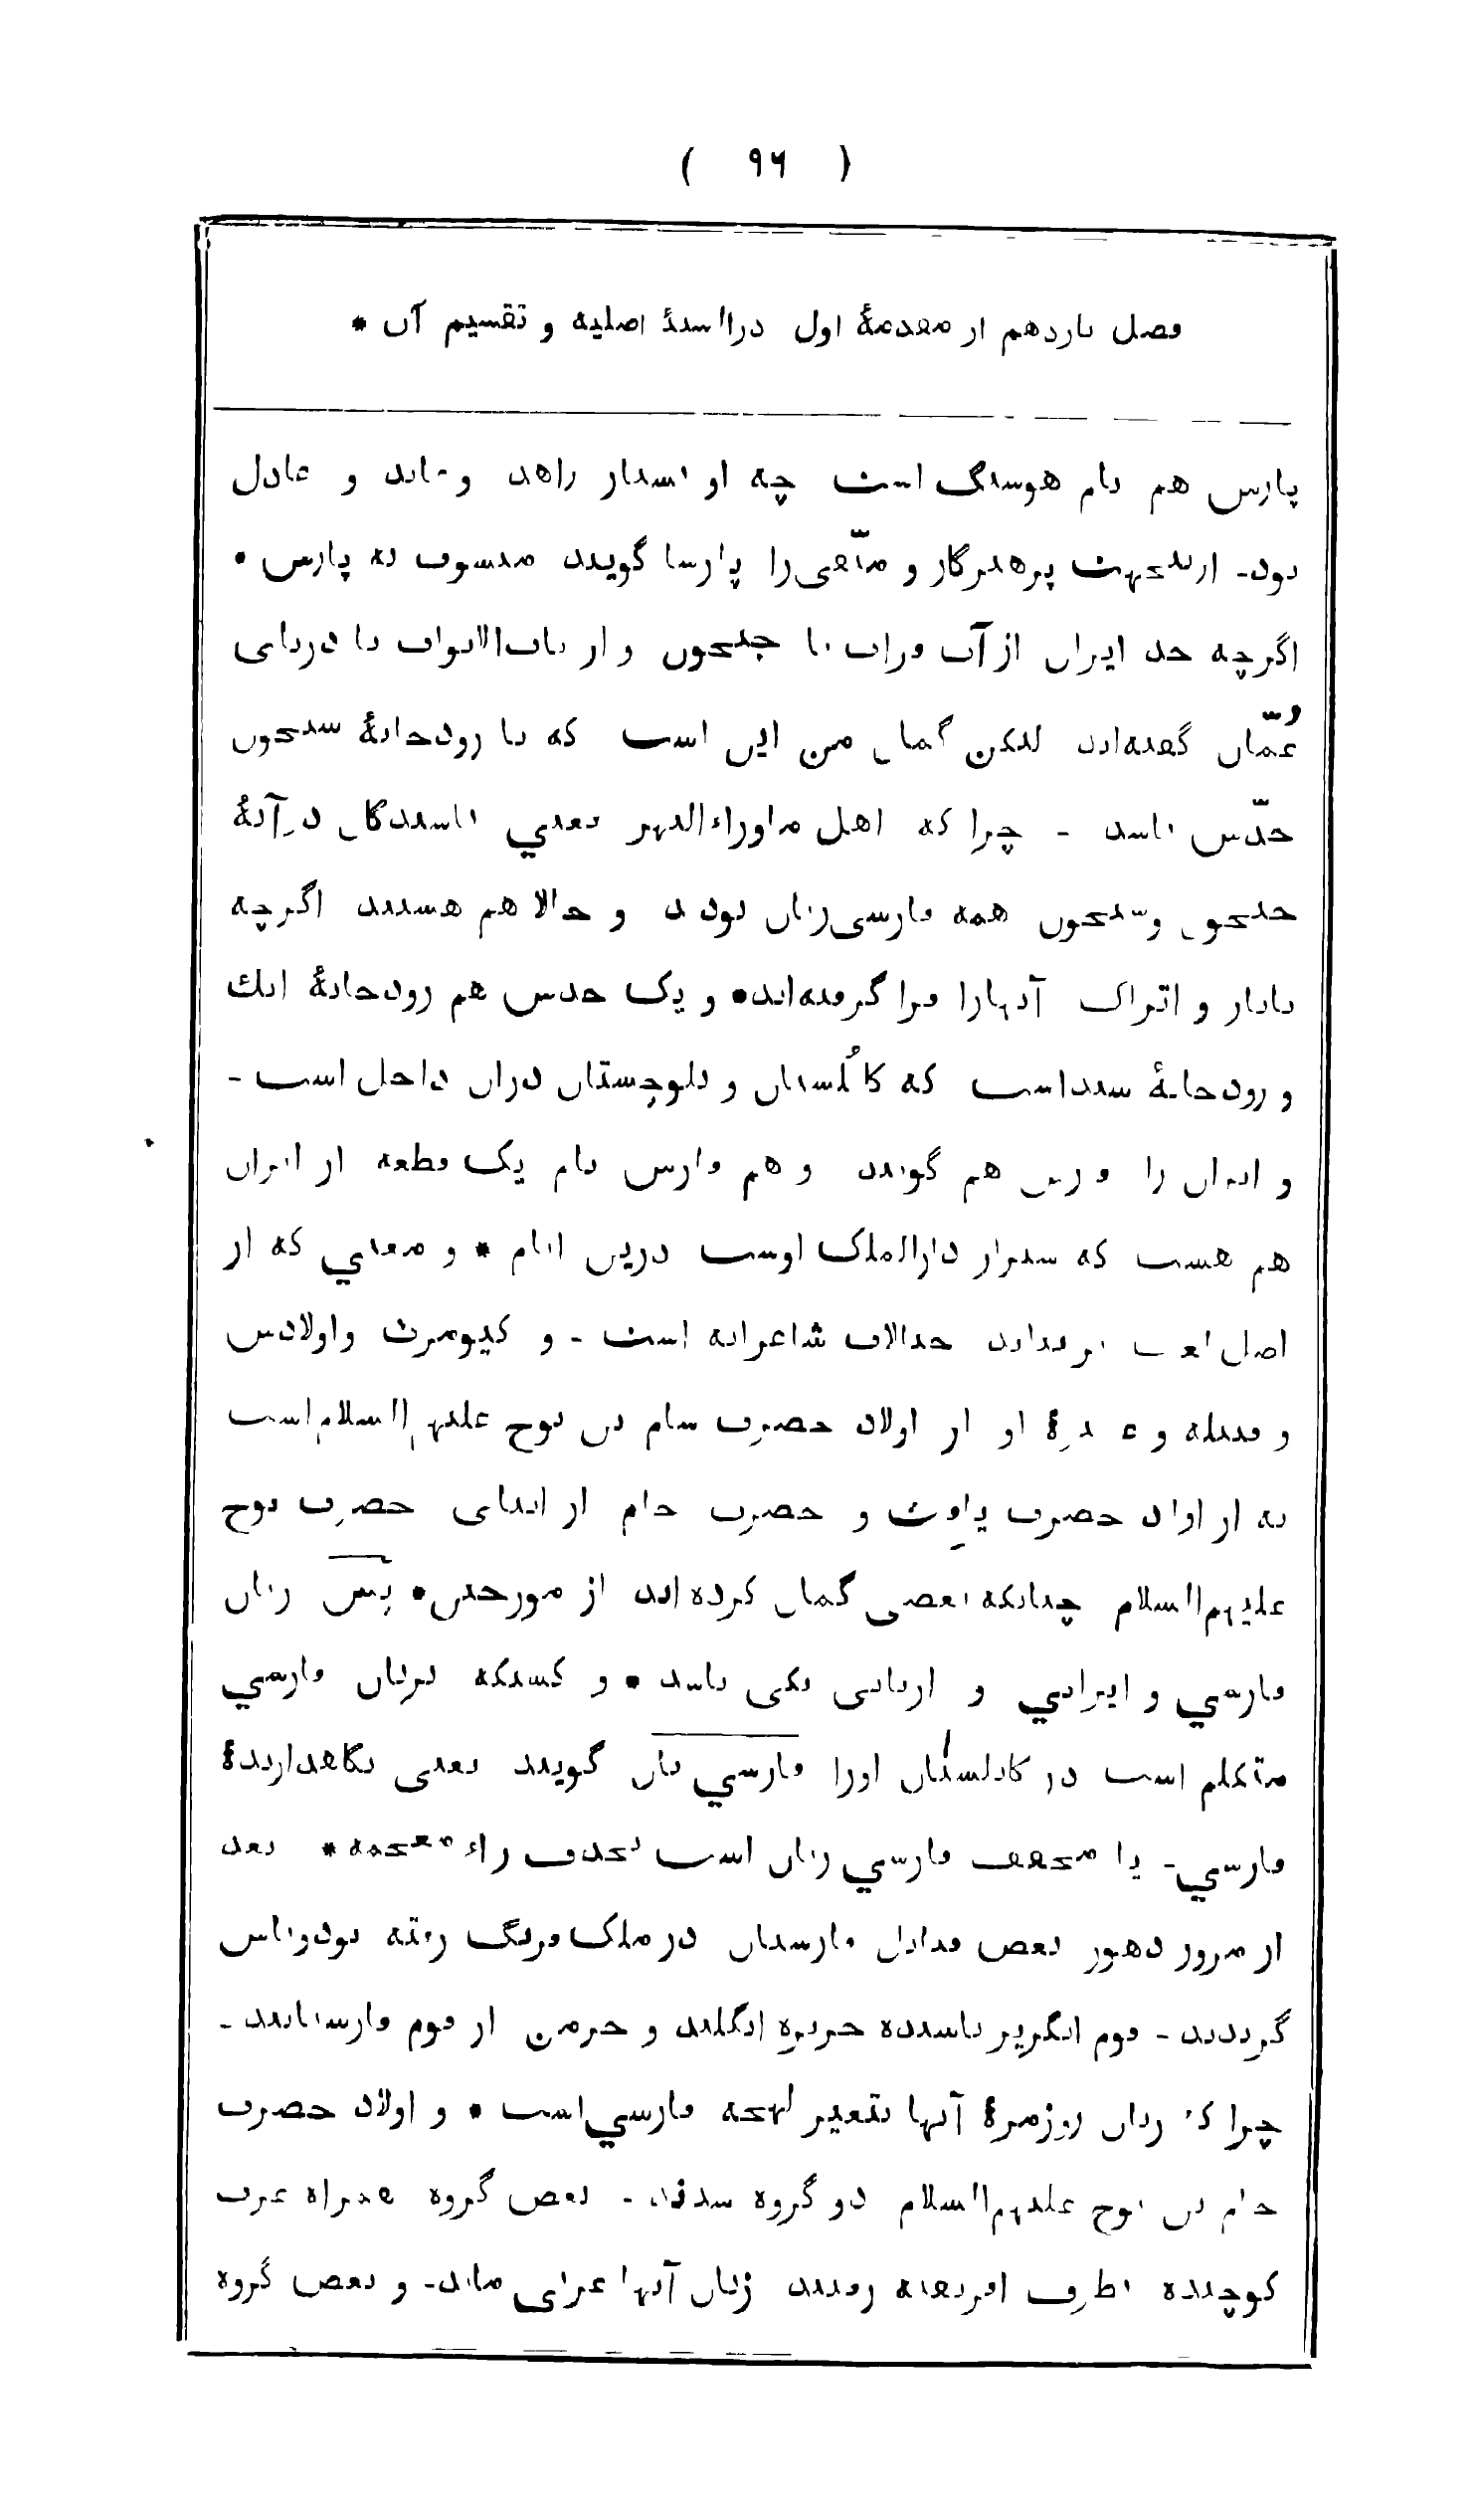 ( ۹۶ )
فصل یازدهم از مقدمهٔ اول درالسنهٔ اصلیه و تقسیم آن *
پارس هم نام هوشنگ است چه او بسیار زاهد و عابد و عادل
بود - ازینجهت پرهیزگار و متّقی را پارسا گویند منسوب به پارس *
اگرچه حد ایران از آب فرات تا جیحون و از باب‌الابواب تا دریای
عُمّان گفته‌اند لیکن گمان من این است که تا رودخانهٔ سیحون
حدّش باشد - چرا که اهل ماوراءالنهر یعني باشندگان درآنهٔ
جیحون و سیحون همه فارسی‌زبان بودند و حالا هم هستند اگرچه
تاتار و اتراک آنهارا فرا گرفته‌اند * و یک حدش هم رودخانهٔ اتک
و رودخانهٔ سنداست که کابُلستان و بلوچستان دران داخل است -
و ایران را فارس هم گویند و هم فارس نام یک قطعه از ایران
هم هست که شیراز دارالملک اوست درین ایام * و معني که از
اصل لغت بر ندارد خیالات شاعرانه است - و کیومرث و اولادش
و قبیله و عشیرهٔ او از اولاد حضرت سام بن نوح علیهم السلام است
نه از اولاد حضرت یافث و حضرت حام از ابنای حضرت نوح
علیهم السلام چنانکه بعضی گمان کرده‌اند از مورخین * پس زبان
فارسي و ایراني و اریانی یکی باشد * و کسیکه بزبان فارسي
متکلم است در کابلستان اورا فارسي بان گویند یعنی نگاهدارندهٔ
فارسي - یا مخفف فارسي زبان است بحذف زاء معجمه * بعد
از مرور دهور بعض قبایل فارسیان در ملک فرنگ رفته بودوباش
گزیدند - قوم انگریز باشنده جزیره انگلند و جرمن از قوم فارسیانند -
چرا که زبان روزمرهٔ آنها بتغیر لهجه فارسي است * و اولاد حضرت
حام بن نوح علیهم السلام دو گروه شدند - بعض گروه همراه عرب
کوچیده بطرف افریقیه رفتند زبان آنها عرابی ماند - و بعض گروه